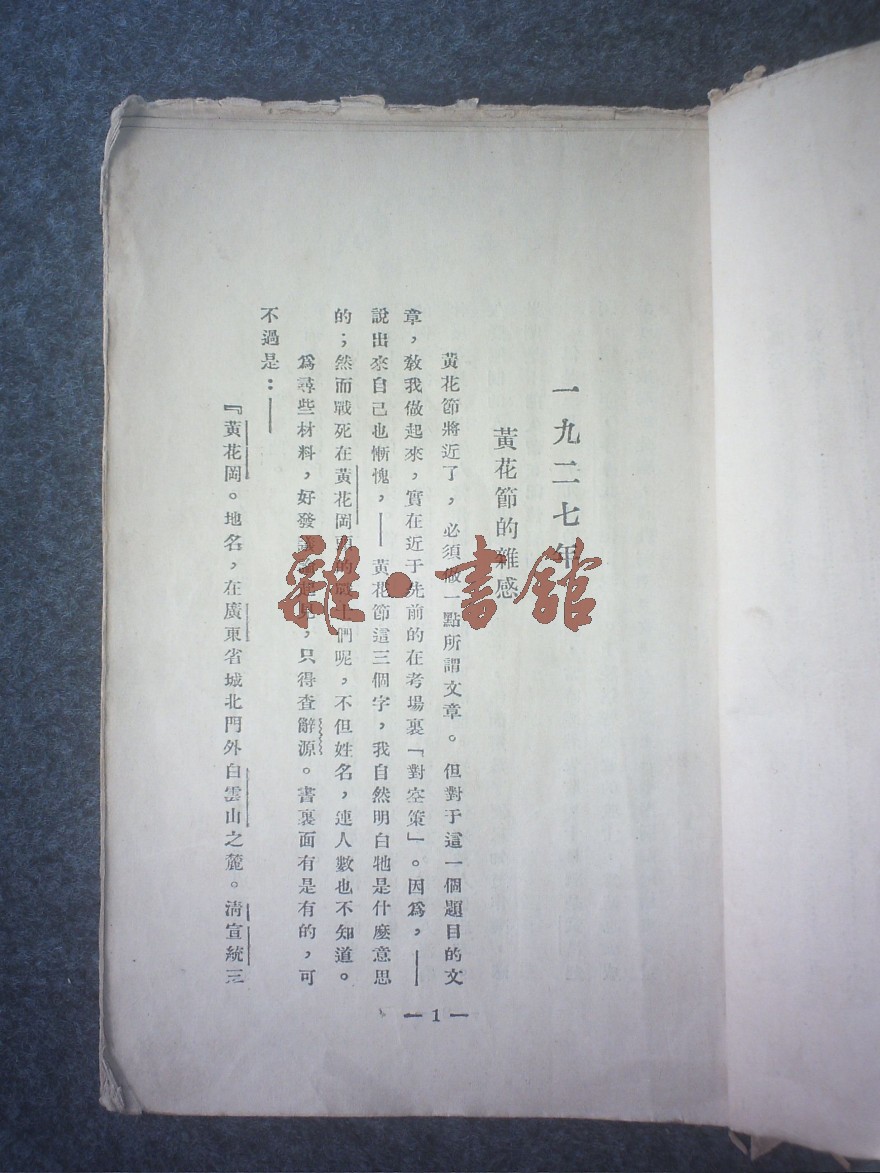 一九二七年
黃花節的雜感
黃花節將近了，必須做一點所謂文章。但對于這一個題目的文
章，敎我做起來，實在近于先前的在考場裏「對空策」。因爲，——
說出來自己也慚愧，——黃花節這三個字，我自然明白牠是什麼意思
的；然而戰死在黃花岡頭的戰士們呢，不但姓名，連人數也不知道。
爲尋些材料，好發議論起見，只得查辭源。書裏面有是有的，可
不過是：——
『黃花岡。地名，在廣東省城北門外白雲山之麓。淸宣統三
— 1 —
雜·書館